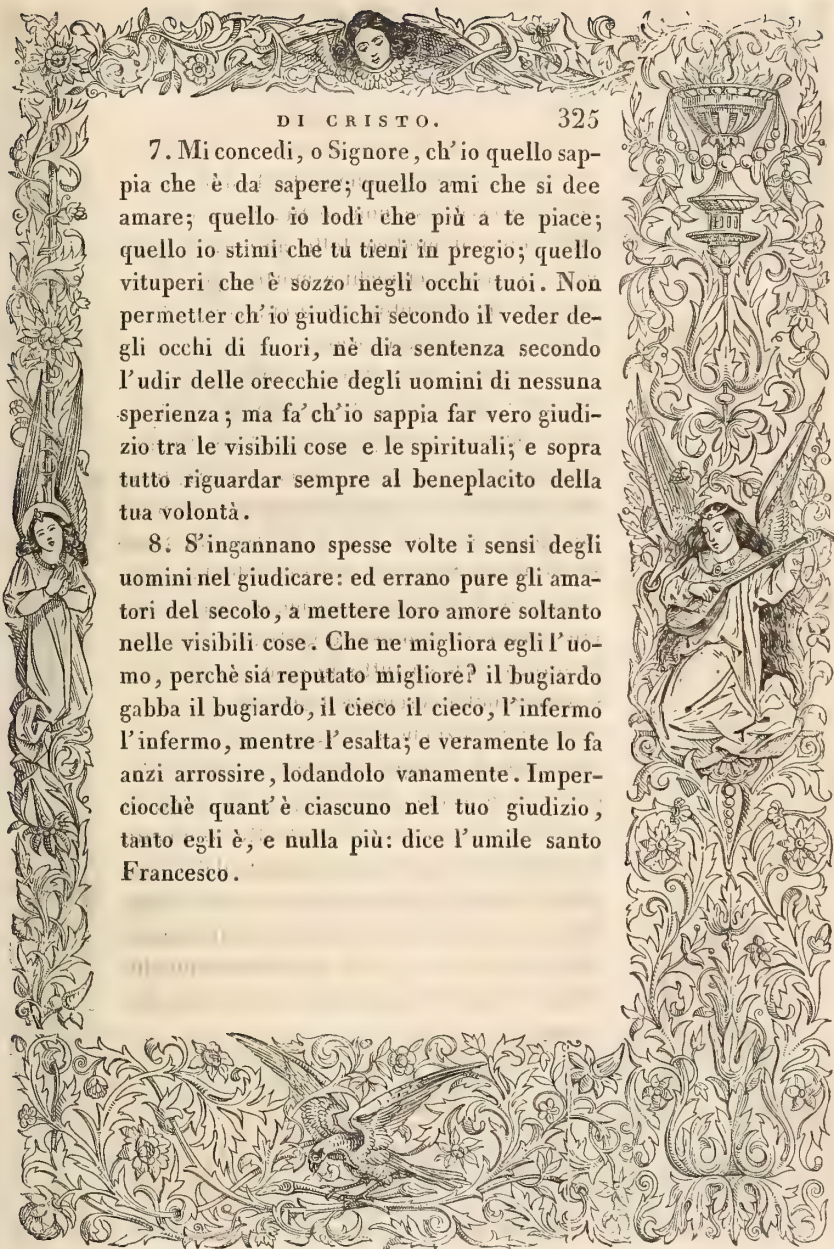 DI CRISTO. 325
7. Mi concedi, o Signore, ch'io quello sap-
pia che è da sapere; quello ami che si dee
amare; quello io lodi che più a te piace;
quello io stimi che tu tieni in pregio; quello
vituperi che è sozzo negli occhi tuoi. Non
permetter ch'io giudichi secondo il veder de-
gli occhi di fuori, nè dia sentenza secondo
l'udir delle orecchie degli uomini di nessuna
sperienza; ma fa' ch'io sappia far vero giudi-
zio tra le visibili cose e le spirituali; e sopra
tutto riguardar sempre al beneplacito della
tua volontà.
8. S'ingannano spesse volte i sensi degli
uomini nel giudicare: ed errano pure gli ama-
tori del secolo, a mettere loro amore soltanto
nelle visibili cose. Che ne migliora egli l'uo-
mo, perchè sia reputato migliore? il bugiardo
gabba il bugiardo, il cieco il cieco, l'infermo
l'infermo, mentre l'esalta; e veramente lo fa
anzi arrossire, lodandolo vanamente. Imper-
ciocchè quant'è ciascuno nel tuo giudizio,
tanto egli è, e nulla più: dice l'umile santo
Francesco.